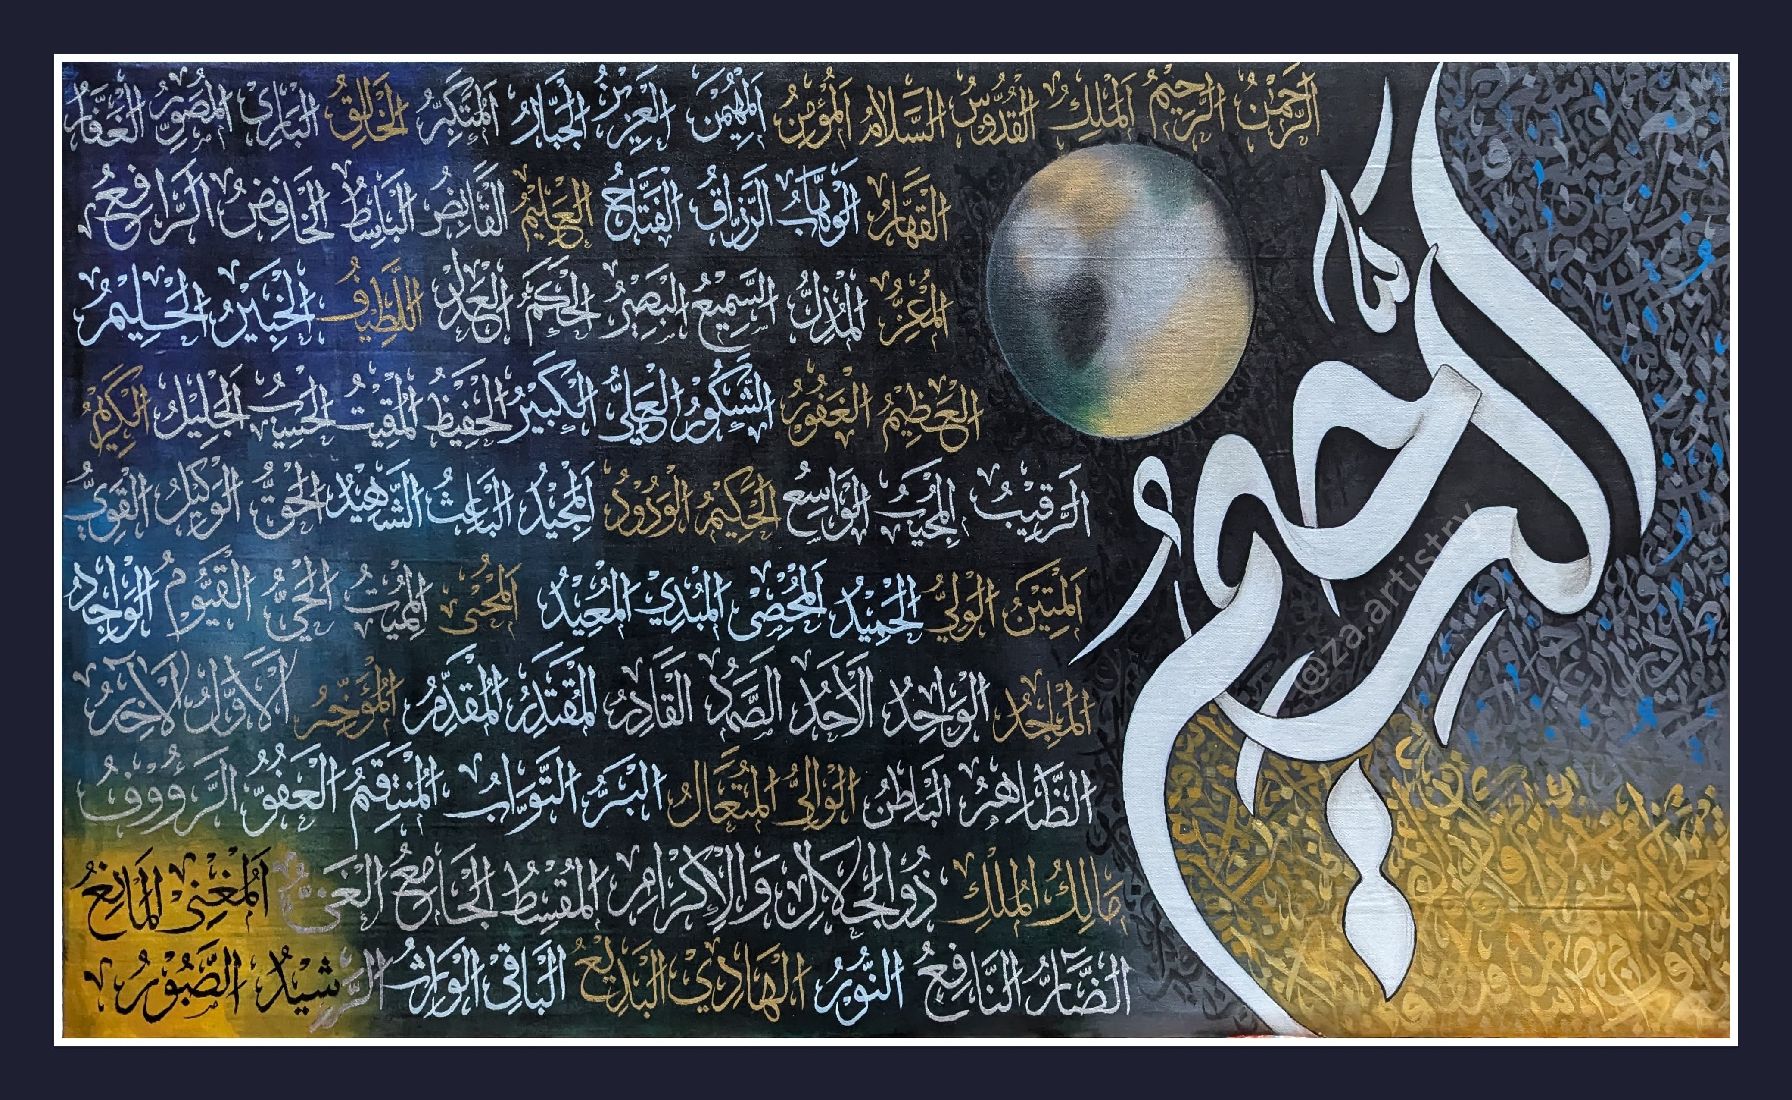 الرَّحْمٰنُ الرَّحِيْمُ اَلْمَلِكُ الْقُدُّوْسُ السَّلَامُ اَلْمُؤْمِنُ اَلْمُهَيْمِنُ الْعَزِيْزُ الْجَبَّارُ اَلْمُتَكَبِّرُ الْخَالِقُ الْبَارِئُ الْمُصَوِّرُ الْغَفَّارُ
الْقَهَّارُ الْوَهَّابُ الرَّزَّاقُ الْفَتَّاحُ الْعَلِيْمُ الْقَابِضُ الْبَاسِطُ الْخَافِضُ الرَّافِعُ
الْمُعِزُّ الْمُذِلُّ السَّمِيْعُ الْبَصِيْرُ الْحَكَمُ الْعَدْلُ اللَّطِيْفُ الْخَبِيْرُ الْحَلِيْمُ
الْعَظِيْمُ الْغَفُوْرُ الشَّكُوْرُ الْعَلِيُّ الْكَبِيْرُ الْحَفِيْظُ الْمُقِيْتُ الْحَسِيْبُ الْجَلِيْلُ الْكَرِيْمُ
الرَّقِيْبُ الْمُجِيْبُ الْوَاسِعُ الْحَكِيْمُ الْوَدُوْدُ الْمَجِيْدُ الْبَاعِثُ الشَّهِيْدُ الْحَقُّ الْوَكِيْلُ الْقَوِيُّ
اَلْمَتِيْنُ الْوَلِيُّ الْحَمِيْدُ الْمُحْصِى الْمُبْدِئُ الْمُعِيْدُ اَلْمُحْيِى الْمُمِيْتُ الْحَيُّ الْقَيُّوْمُ الْوَاجِدُ
الْمَاجِدُ الْوَاحِدُ الْاَحَدُ الصَّمَدُ الْقَادِرُ الْمُقْتَدِرُ الْمُقَدِّمُ الْمُؤَخِّرُ الْاَوَّلُ الْاٰخِرُ
الظَّاهِرُ الْبَاطِنُ الْوَالِيُ الْمُتَعَالُ الْبَرُّ التَّوَّابُ الْمُنْتَقِمُ الْعَفُوُّ الرَّءُوْفُ
مَالِكُ الْمُلْكِ ذُوالْجَلَالِ وَالْاِكْرَامِ الْمُقْسِطُ الْجَامِعُ الْغَنِيُّ اَلْمُغْنِى الْمَانِعُ
الضَّآرُّ النَّافِعُ النُّوْرُ الْهَادِيْ الْبَدِيْعُ الْبَاقِى الْوَارِثُ الرَّشِيْدُ الصَّبُوْرُ
@za.artistry